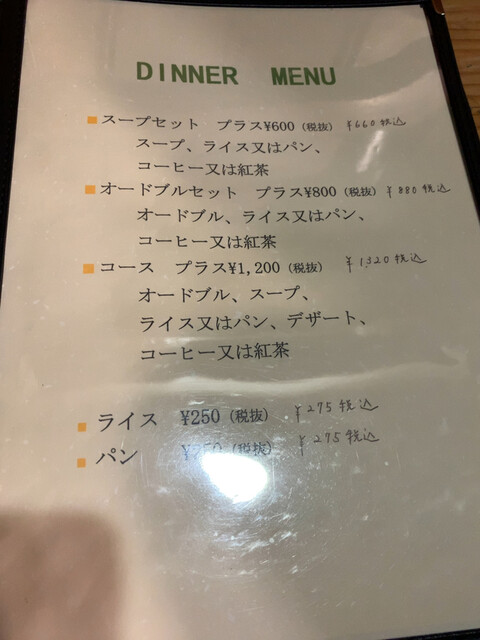 DINNER MENU
スープセット プラス¥600（税抜） ¥660税込
スープ、ライス又はパン、
コーヒー又は紅茶
オードブルセット プラス¥800（税抜） ¥880税込
オードブル、ライス又はパン、
コーヒー又は紅茶
コース プラス¥1,200（税抜） ¥1,320税込
オードブル、スープ、
ライス又はパン、デザート、
コーヒー又は紅茶
ライス ¥250（税抜） ¥275税込
パン （税抜） ¥275税込